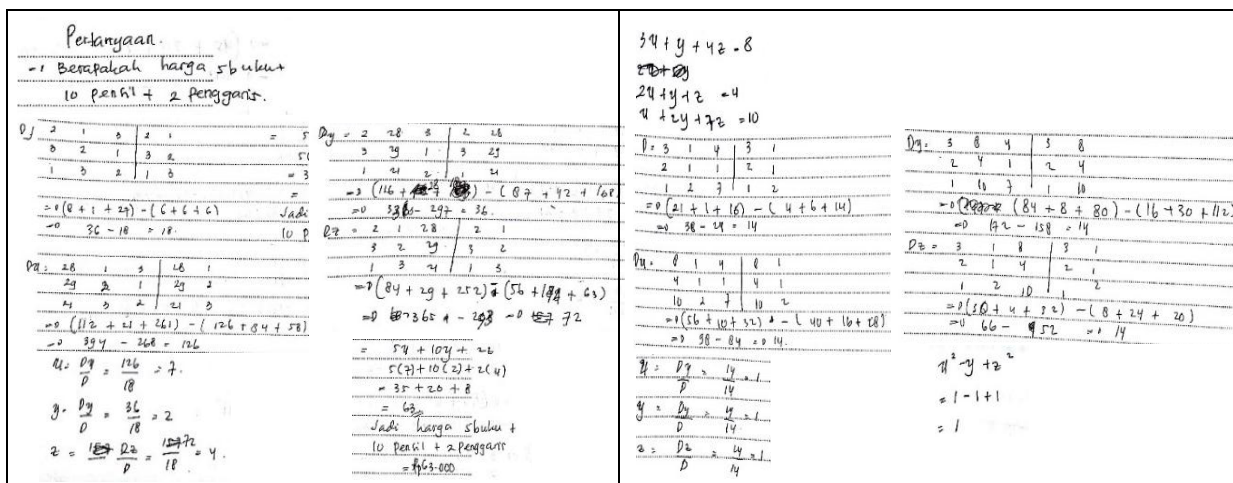 Pertanyaan.
-1 Berapakah harga 5 buku +
10 pensil + 2 penggaris.
D = 2 1 3 | 2 1
3 2 1 | 3 2
1 3 2 | 1 3
=0 (8 + 1 + 27) - (6 + 6 + 6)
=0 36 - 18 = 18.
= 5
5(
= 3
=
Jadi
10 p
Dx = 28 1 3 | 28 1
29 2 1 | 29 2
21 3 2 | 21 3
=0 (112 + 21 + 261) - (126 + 84 + 58)
=0 394 - 268 = 126
x = Dx/D = 126/18 = 7.
y = Dy/D = 36/18 = 2
z = Dz/D = 72/18 = 4.
Dy = 2 28 3 | 2 28
3 29 1 | 3 29
1 21 2 | 1 21
=0 (116 + 28 + ) - (87 + 42 + 168
=0 - 297 = 36.
Dz = 2 1 28 | 2 1
3 2 29 | 3 2
1 3 21 | 1 3
=0 (84 + 29 + 252) - (56 + + 63)
=0 365 - =0 72
= 5x + 10y + 2z
5(7) + 10(2) + 2(4)
= 35 + 20 + 8
= 63
Jadi harga 5 buku +
10 pensil + 2 penggaris
= Rp63.000
3x + y + 4z = 8
2x + y + z = 4
x + 2y + 7z = 10
D = 3 1 4 | 3 1
2 1 1 | 2 1
1 2 7 | 1 2
=0 (21 + 1 + 16) - (4 + 6 + 14)
=0 38 - 24 = 14
Dx = 8 1 4 | 8 1
4 1 1 | 4 1
10 2 7 | 10 2
=0 (56 + 10 + 32) - (40 + 16 + 28)
=0 98 - 84 =0 14.
x = Dx/D = 14/14 = 1
y = Dy/D = 14/14 = 1
z = Dz/D = 14/14 = 1
Dy = 3 8 4 | 3 8
2 4 1 | 2 4
1 10 7 | 1 10
=0 (84 + 8 + 80) - (16 + 30 + 112)
=0 172 - 158 = 14
Dz = 3 1 8 | 3 1
2 1 4 | 2 1
1 2 10 | 1 2
=0 (30 + 4 + 32) - (8 + 24 + 20)
=0 66 - 52 =0 14
x² - y + z²
= 1 - 1 + 1
= 1